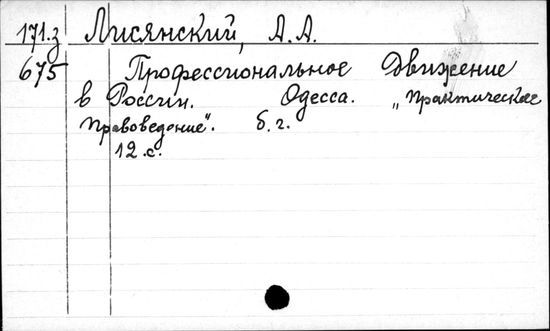 171.з Лисянский, А.А.
675 Профессиональное движение
в России. Одесса. „Практическое
правоведение". б.г.
12 с.